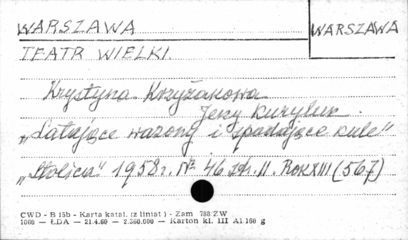 WARSZAWA
WARSZAWA
TEATR WIELKI.
Krystyna Krzyżakowa
Jerzy Kuryluk.
„Latające wazony i spadające kule"
„Stolica" 1958r. Nr 46 str. 11. Rok XIII (567)
CWD - B 15b - Karta katal. (z liniat) - Zam 788/ZW
1000 — ŁDA — 21.4.60 — 2.360.000 — Karton kl. III A1 160 g